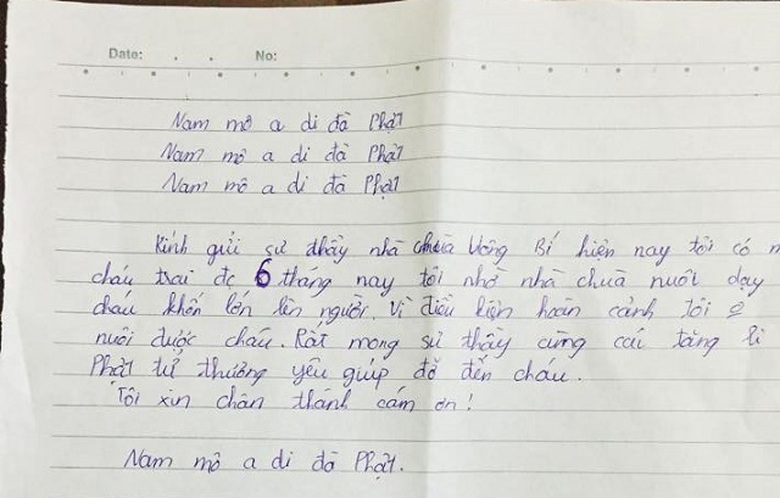 Date: . . No:
Nam mô a di đà Phật
Nam mô a di đà Phật
Nam mô a di đà Phật
Kính gửi sư thầy nhà chùa Uông Bí hiện nay tôi có
cháu trai đc 6 tháng nay tôi nhờ nhà chùa nuôi dạy
cháu khôn lớn lên người. Vì điều kiện hoàn cảnh tôi
nuôi được cháu. Rất mong sư thầy cùng cái tăng li
Phật tử thương yêu giúp đỡ đến cháu.
Tôi xin chân thánh cám ơn!
Nam mô a di đà Phật.